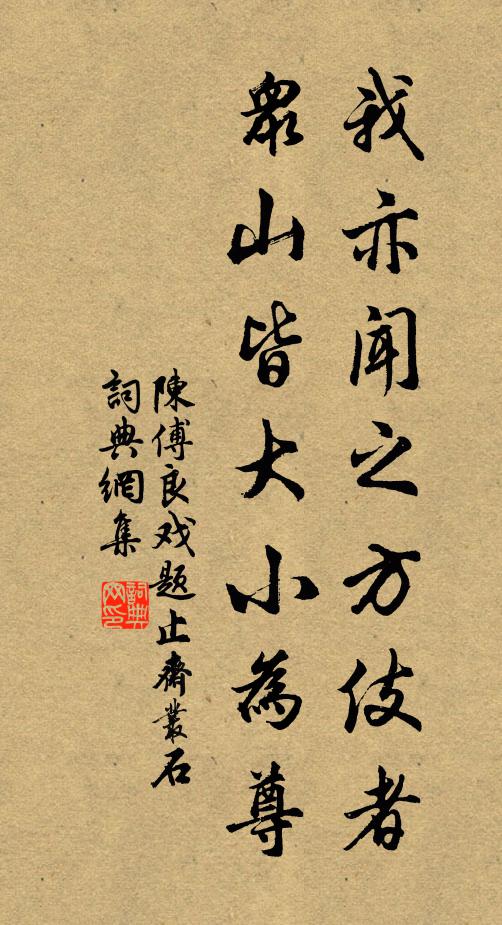 我亦闻之方伎者
眾山皆大小為尊
陳傅良戏题止齋叢石
詞典網集
詞典網印